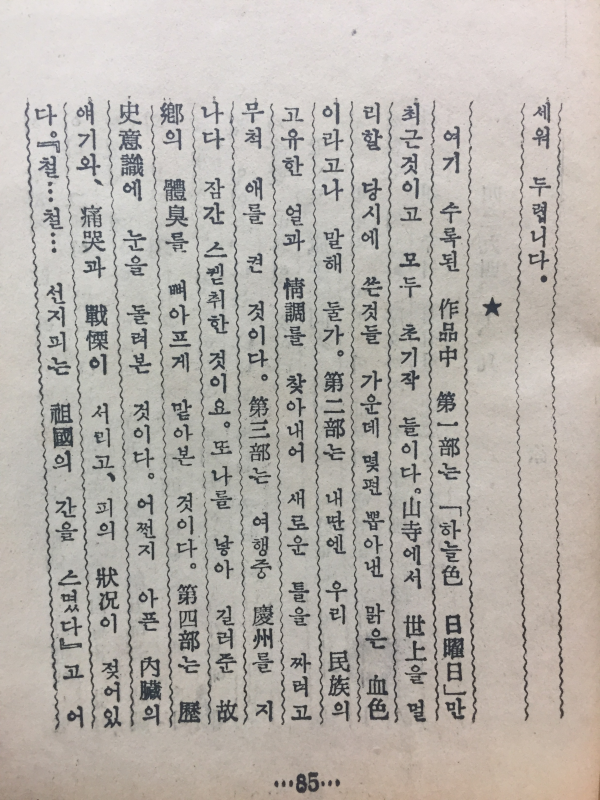 세워 두렵니다.
★
여기 수록된 作品中 第一部는 「하늘色 日曜日」만
최근것이고 모두 초기작 들이다. 山寺에서 世上을 멀
리할 당시에 쓴것들 가운데 몇편 뽑아낸 맑은 血色
이라고나 말해 둘가. 第二部는 내딴엔 우리 民族의
고유한 얼과 情調를 찾아내어 새로운 틀을 짜려고
무척 애를 켠 것이다. 第三部는 여행중 慶州를 지
나다 잠간 스켙취한 것이요. 또 나를 낳아 길러준 故
鄕의 體臭를 뼈아프게 맡아본 것이다. 第四部는 歷
史意識에 눈을 돌려본 것이다. 어쩐지 아픈 內臟의
얘기와, 痛哭과 戰慄이 서리고, 피의 狀況이 젖어있
다. 『철…철… 선지피는 祖國의 간을 스몄다』고 어
…85…